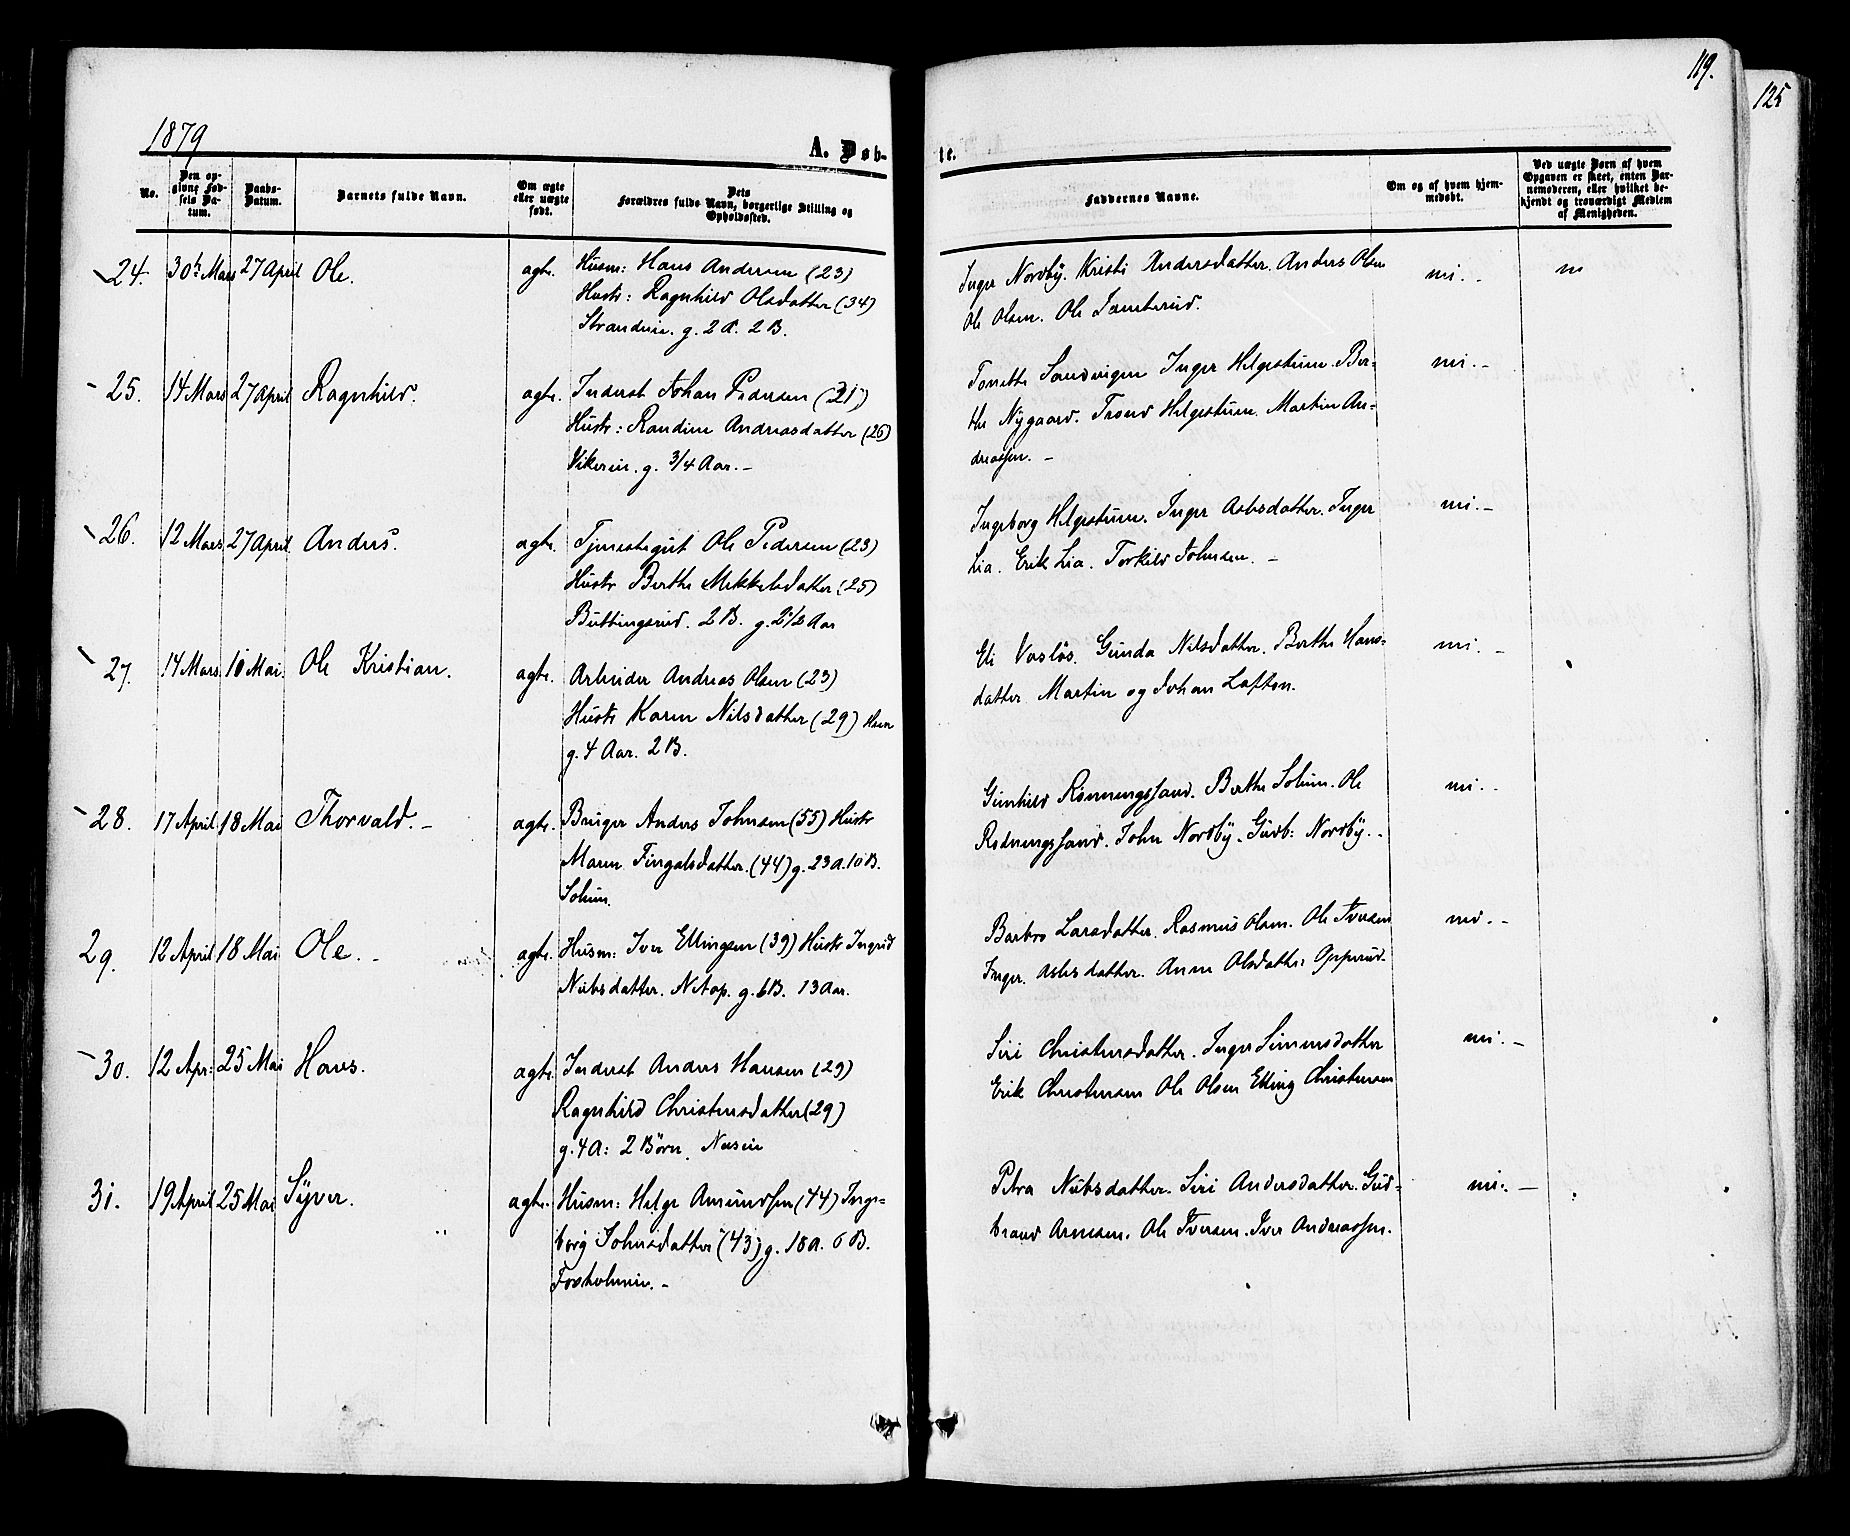 119.
125
1879
A. Døb-
te.
No.
Den op-
givne Fød-
sels Da-
tum.
Daabs-
Datum.
Barnets fulde Navn.
Om ægte
eller uægte
født.
Dets
Forældres fulde Navn, borgerlige Stilling og
Opholdssted.
Faddernes Navne.
Om og af hvem hjem-
medøbt.
Ved uægte Børn af hvem
Opgaven er skeet, enten Bar-
nemoderen, eller hvilket be-
kjendt og troværdigt Medlem
af Menigheden.
24. 30te Mars 27 April Ole. ægte. Husm: Hans Andersen (23)
Hustr: Ragnhild Olsdatter (34)
g. 2 A. 2 B.
Inger Nordby. Kristi Andersdatter. Anders Olsen
Ole Olsen. Ole
ni. -
25. 14 Mars 27 April Ragnhild. ægte. Inderst Johan Pedersen (21)
Hustr: Randine Andreasdatter (26)
Vikereie. g. 3/4 Aar. -
Tonette Sandvigen Inger Helgestuen. Ber-
the Nygaard. Trond Helgestuen. Martin An-
dreassen. -
ni. -
26. 12 Mars 27 April. Anders. ægte. Tjenestegut Ole Pedersen (23)
Hustr Berthe Mikkelsdatter (25)
Buttingsrud. 2 B. g. 2 1/2 Aar
Ingeborg Helgestuen. Inger Asbsdatter. Inger
Lia. Erik Lia. Torkild Johnsen. -
ni. -
27. 14 Mars. 10 Mai. Ole Kristian. ægte. Arbeider Andreas Olsen (23)
Hustr Karen Nilsdatter (29) Hæn
g. 4 Aar. 2 B.
Eli Vasløs. Gunda Nilsdatter. Berthe Hans-
datter Martin og Johan Loften.
ni. -
28. 17 April. 18 Mai Thorvald. - ægte. Bruger Anders Johnsen (55) Hustr
Maren Fingalsdatter. (44) g. 23 A. 10 B.
Solum.
Gunhild Rønningssand. Berthe Solum. Ole
Rødningssand. John Nordby. Gudb: Nordby. -
ni. -
29. 12 April 18 Mai Ole. - ægte. Husm: Iver Ellingsen (39) Hustr Ingrid
Nubsdatter. g. 6 B. 13 Aar.
Barbro Larsdatter. Rasmus Olsen. Ole Iversen
Inger Aslesdatter. Anne Olsdatter Opperud.
-
30. 12 Apr: 25 Mai Hans. ægte. Inderst Anders Hansen (29)
Ragnhild Christensdatter (29)
g. 4 A: 2 Børn. Næseie
Siri Christensdatter. Inger Simensdatter
Erik Christensen Ole Olsen Elling Christensen
ni. -
31. 19 April 25 Mai Syver. ægte. Husm: Helge Amundsen (44) Inge-
borg Johnsdatter (43) g. 18 A. 6 B.
Fosholmeie. -
Petra Nubsdatter. Siri Andersdatter. Gud-
brand Arnesen. Ole Iversen. Iver Andreassen.
ni. -